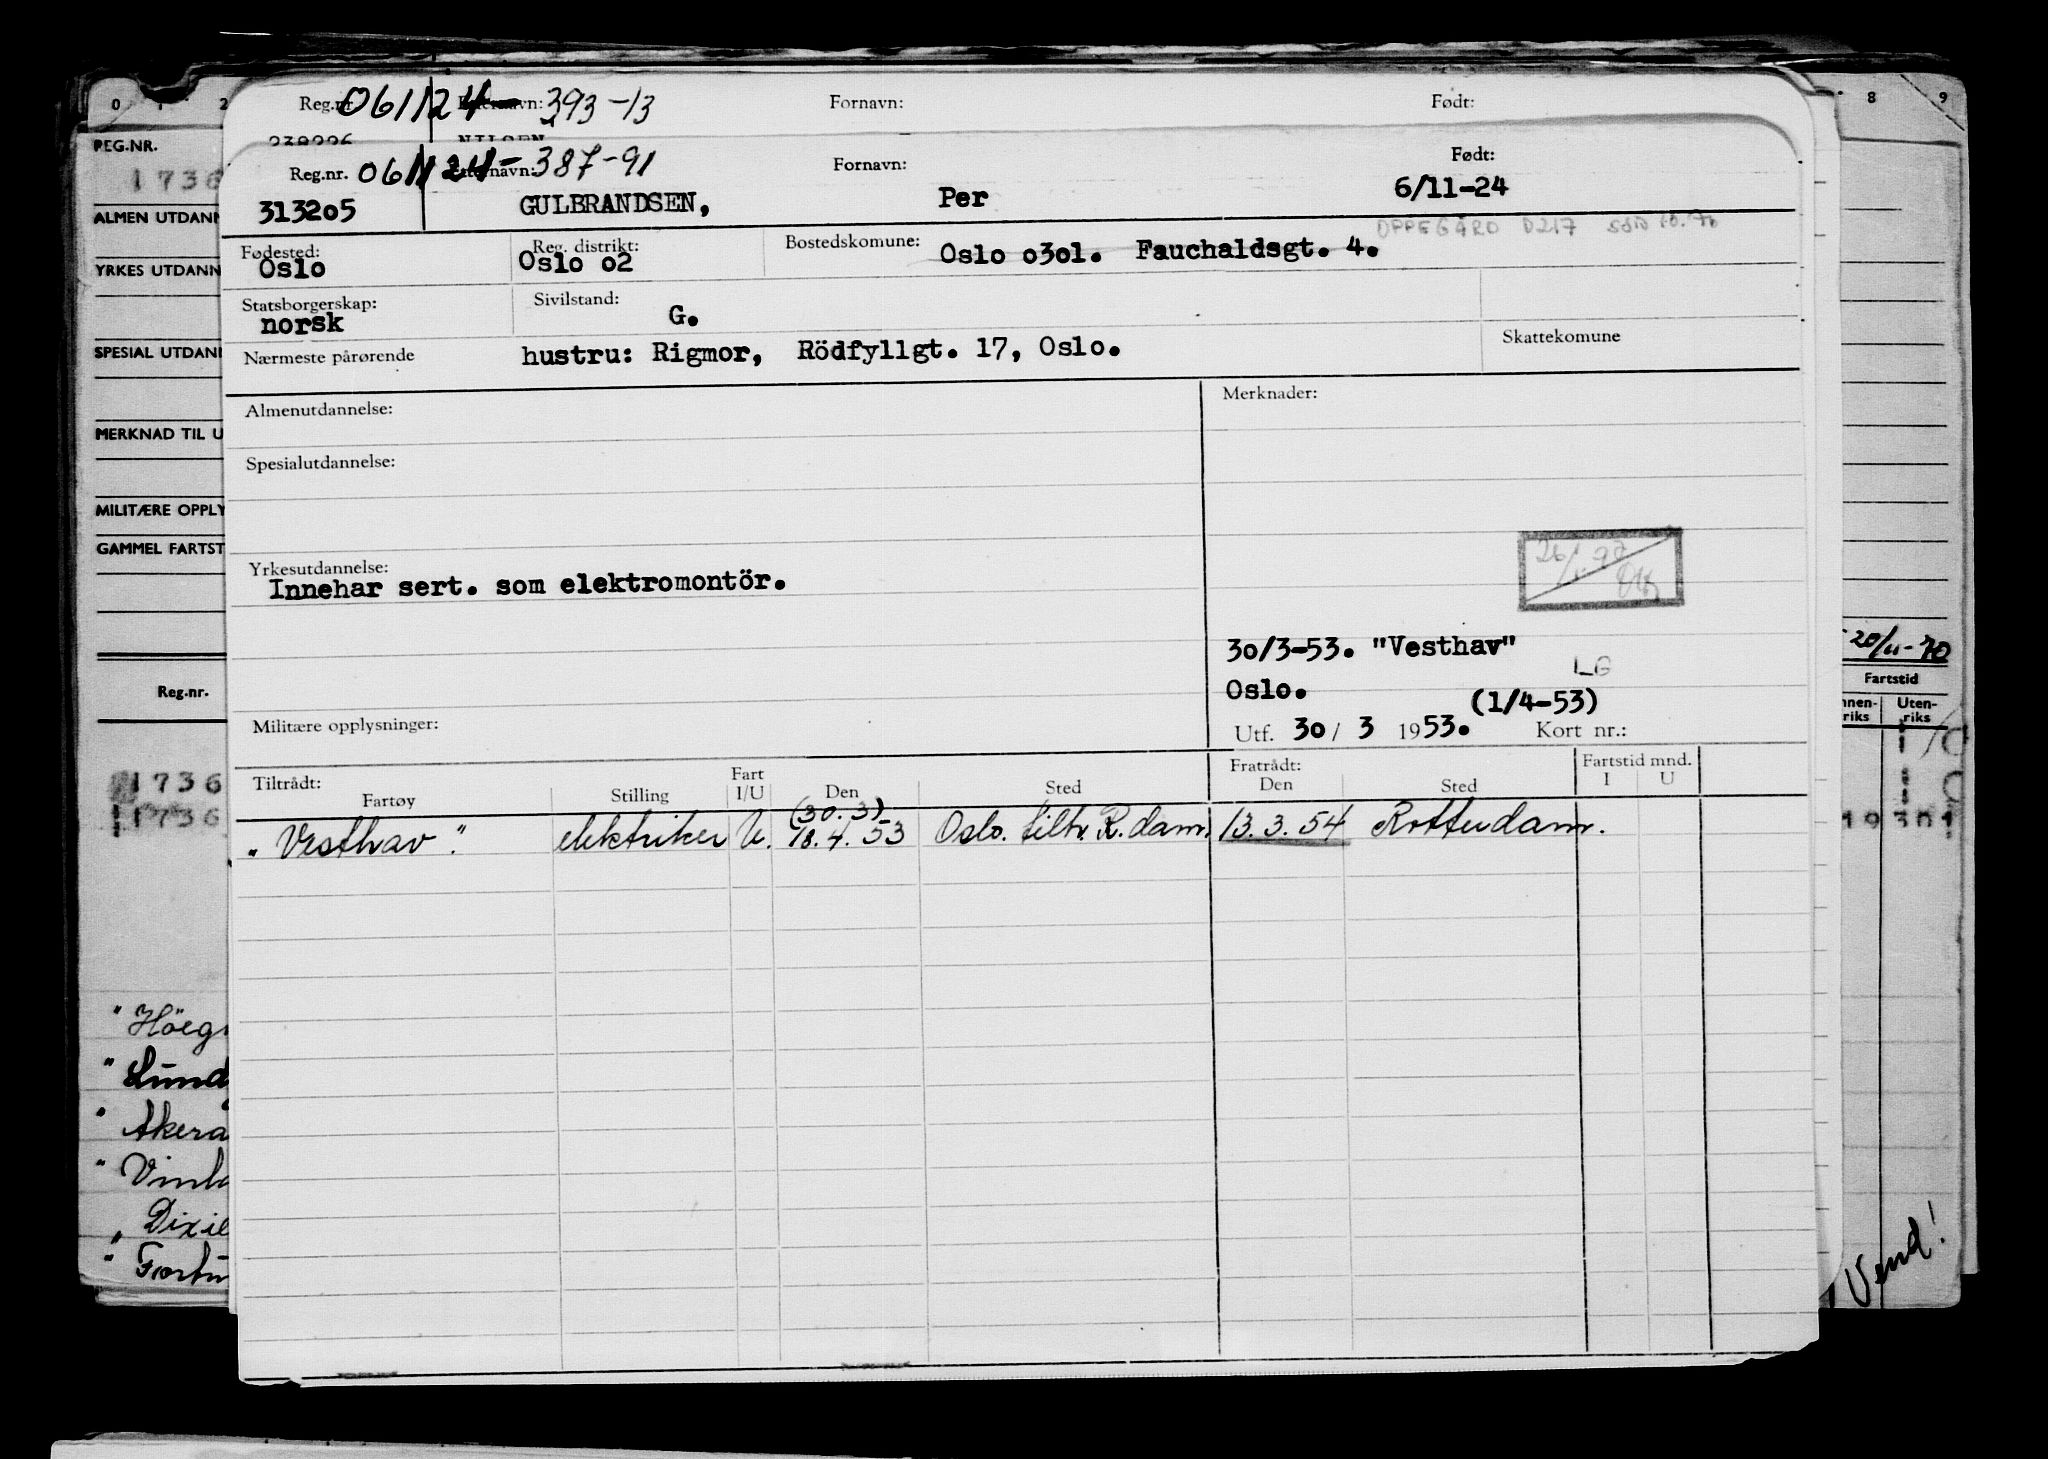 0 1 2 Reg.nr. 061124-393-13 Etternavn: Fornavn: Født: 8 9
238226 NILSEN
PEG.NR.
1736
Reg.nr. 061124-387-91 Etternavn: Fornavn: Født:
313205 GULBRANDSEN, Per 6/11-24
ALMEN UTDANN
OPPEGÅRD 0217
Fødested: Reg. distrikt: Bostedskomune:
Oslo Oslo o2 Oslo o3o1. Fauchaldsgt. 4.
YRKES UTDANN
Statsborgerskap: Sivilstand:
norsk G.
Nærmeste pårørende hustru: Rigmor, Rödfyllgt. 17, Oslo. Skattekomune
SPESIAL UTDANN
Almenutdannelse: Merknader:
MERKNAD TIL U
Spesialutdannelse:
MILITÆRE OPPLY
GAMMEL FARTST
Yrkesutdannelse:
Innehar sert. som elektromontör.
30/3-53. "Vesthav"
LG
Oslo. (1/4-53)
Utf. 30/ 3 1953. Kort nr.:
20/11-70
Fartstid
Innen- riks Uten- riks
Reg.nr.
Militære opplysninger:
Tiltrådt: Fratrådt: Fartstid mnd.
Fartøy Stilling Fart I/U Den Sted Den Sted I U
(30.3)
"Vesthav" elektriker U. 18.4.53 Oslo. tiltr. R.dam. 13.3.54 Rotterdam.
1736
1736
19301
"Höeg
"Lund
"Akera
"Vinla
"Dixie
"Fortu
Vend!